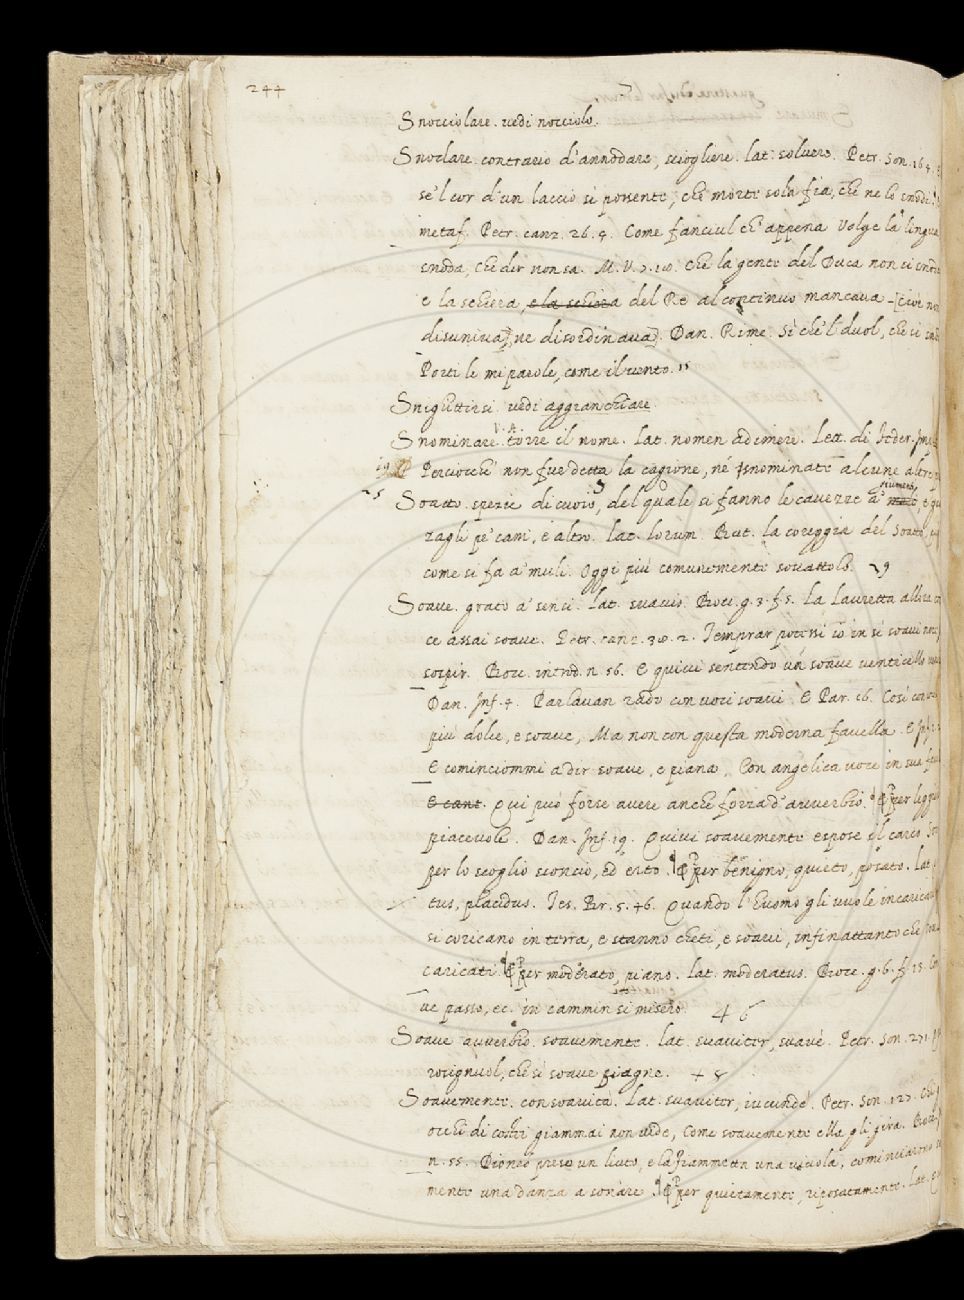 244
Snocciolare. vedi nocciolo.
Snodare. contrario d'annodare, sciogliere. lat. solvere. Petr. Son. 164.
se'l cor d'un laccio si possente, che morte sola fia, che ne lo snodi.
metaf. Petr. canz. 26. 4. Come fanciul ch'appena Volge la lingua
snoda, che dir non sa. M. V. 7. Che la gente del Duca non si snoda
e la schiera, e la schiera del Re al continuo mancava [cioè non
disuniva], ne disordinava]. Dan. Rime. Sì che'l duol, che si
Porti le mi parole, come il vento. 15
Snighittirsi vedi aggranchiare
V. A.
Snominare. torre il nome. Lat. nomen adimere. Lett. di feder. Imp.
19 Perciocchè non fue detta la cagione, né snominate alcune altre
25 Soatto. spezie di cuoio, del quale si fanno le cavezze a' giumenti, e
zagli pe' cani, e altro. lat. lorum. But. la coreggia del Soatto,
come si fa a' muli. Oggi più comunemente sovattolo. 29
Soave. grato a' sensi. lat. suavis. Bocc. g. 3. f. 5. La Lauretta allora
ce assai soave. Petr. canz. 30. 2. Temprar potess' io in sì soavi note
sospir. Bocc. introd. n. 56. E quivi sentendo un soave venticello
Dan. Inf. 4. Parlavan rado con voci soavi. E Par. 16. Così con voce
più dolce, e soave, Ma non con questa moderna favella. E Inf. 2.
E cominciommi a dir soave, e piana, Con angelica voce in sua favella
E cant. Qui può forse avere anche forza d'avverbio. E per leggier
piacevole. Dan. Inf. 19. Quivi soavemente espose il carco
per lo scoglio sconcio, ed erto. E per benigno, quieto, posato. lat.
tus, placidus. Tes. Br. 5. 46. Quando l'huomo gli vuole incaricare
si coricano in terra, e stanno cheti, e soavi, infinattanto che
caricati. E per moderato, piano. lat. moderatus. Bocc. g. 6. f. 15.
ve passo, ec. in cammin si misero. 46
Soave avverbio. soavemente. lat. suaviter, suavè. Petr. Son. 271.
rosignuol, che sì soave piagne. + 8
Soavemente. con soavità. Lat. suaviter, iucundè. Petr. Son. 127. Chi
occhi di costei giammai non vide, Come soavemente ella gli gira. Bocc.
n. 55. Dioneo preso un liuto, e la fiammetta una viuola, cominciarono
mente una danza a sonare. E per quietamente, riposatamente. Lat.